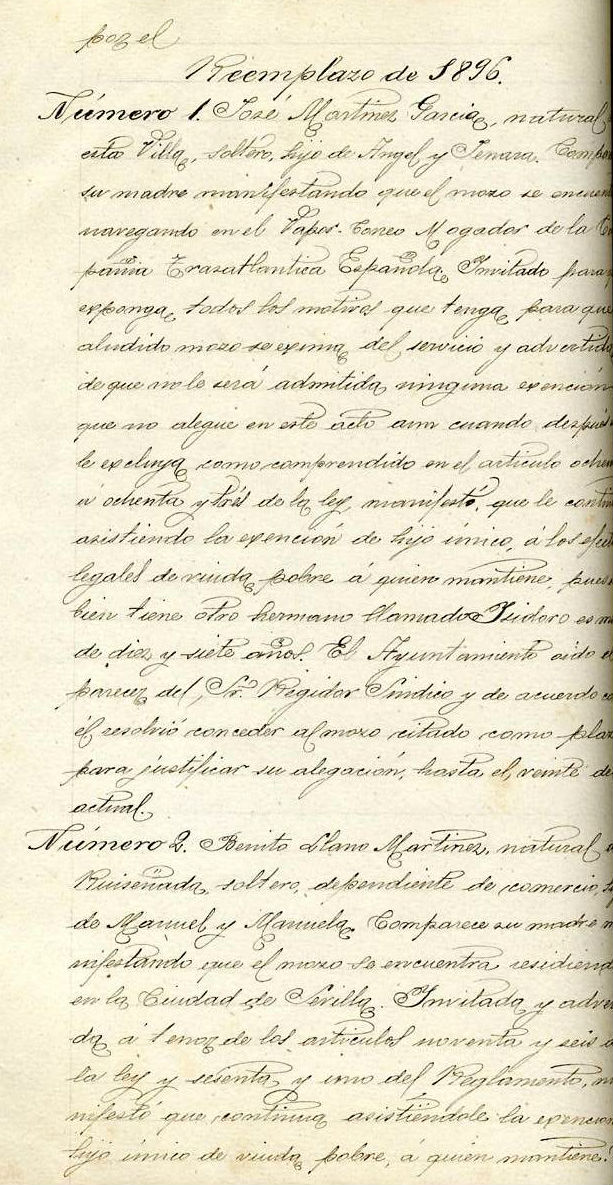 por el
Reemplazo de 1896.
Número 1. José Martinez Garcia, natural
esta Villa, soltero, hijo de Angel y Jenara. Compar
su madre manifestando que el mozo se encuen
navegando en el Vapor-Correo Mogador de la Co
pañia Trasatlantica Española. Invitado para
exponga todos los motivos que tenga para que
aludido mozo se exima del servicio y advertido
de que no le será admitida ninguna exención
que no alegue en este acto aun cuando despues
le excluya como comprendido en el articulo ochen
á ochenta y trés de la ley, manifestó, que le contin
asistiendo la exención de hijo único, á los efect
legales de viuda pobre á quien mantiene, pues
bien tiene otro hermano llamado Isidoro es m
de diez y siete años. El Ayuntamiento oido el
parecer del Sr. Regidor Sindico y de acuerdo co
él resolvió conceder al mozo citado como plaz
para justificar su alegación, hasta el veinte de
actual.
Número 2. Benito Llano Martinez, natural
Ruiseñada, soltero, dependiente de comercio, h
de Manuel y Manuela. Comparece su madre m
nifestando que el mozo se encuentra residiend
en la Ciudad de Sevilla. Invitada y adver
da á tenor de los articulos noventa y seis
la ley y sesenta y uno del Reglamento, m
nifestó que continua asistiéndole la exencion
hijo único de viuda pobre, á quien mantiene.